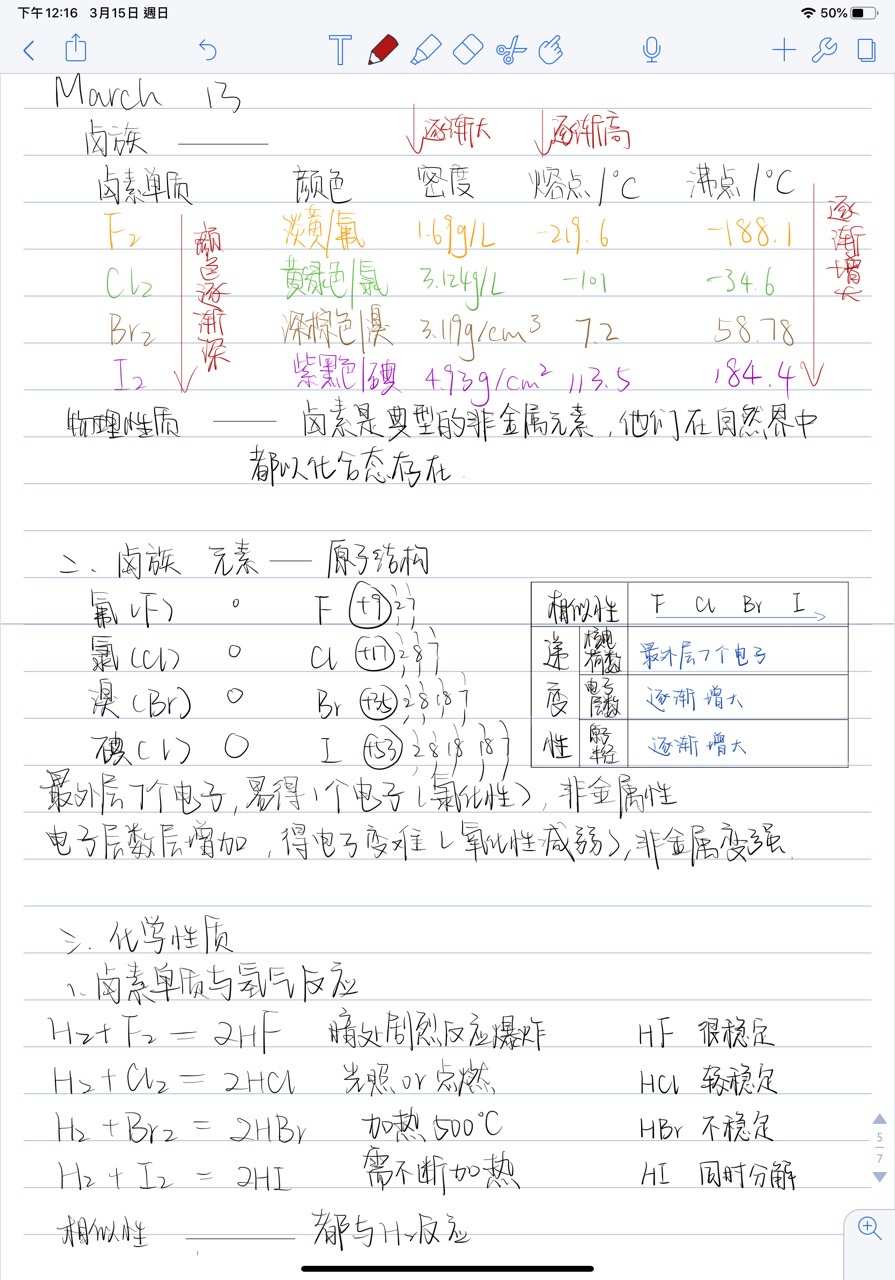 下午12:16 3月15日 週日
50%
March 13
卤族 ——— ↓逐渐大 ↓逐渐高
卤素单质 颜色 密度 熔点/°C 沸点/°C
F₂ 淡黄/氟 1.69g/L -219.6 -188.1
Cl₂ 黄绿色/氯 3.124g/L -101 -34.6
Br₂ 深棕色/溴 3.119g/cm³ 7.2 58.78
I₂ 紫黑色/碘 4.93g/cm² 113.5 184.4
颜色逐渐深
逐渐增大
物理性质 ——— 卤素是典型的非金属元素,他们在自然界中
都以化合态存在.
二、卤族 元素 —— 原子结构
氟(F) F +9 2 7
氯(Cl) Cl +17 2 8 7
溴(Br) Br +35 2 8 18 7
碘(I) I +53 2 8 18 18 7
相似性 F Cl Br I
递 核电荷数 最外层7个电子
变 电子层数 逐渐增大
性 原子半径 逐渐增大
最外层7个电子,易得1个电子(氧化性),非金属性
电子层数层增加,得电子变难(氧化性减弱),非金属变强.
三、化学性质
1、卤素单质与氢气反应
H₂+F₂=2HF 暗处剧烈反应爆炸 HF 很稳定
H₂+Cl₂=2HCl 光照or点燃 HCl 较稳定
H₂+Br₂=2HBr 加热500°C HBr 不稳定
H₂+I₂=2HI 需不断加热 HI 同时分解
相似性 ——— 都与H₂反应
5
7